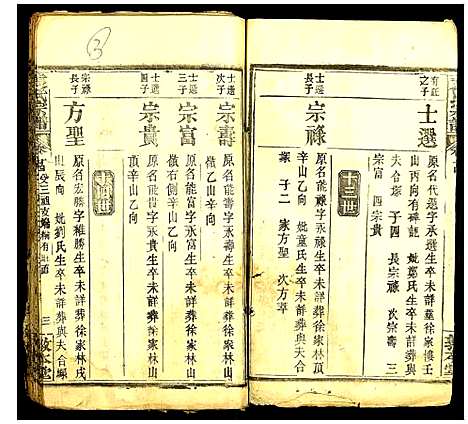 有正之子
士選
原名代選字承選生卒未詳葬徐家樓壬
山丙向有碑記 妣鄭氏生卒未詳葬與
夫合塚 子四 長宗祿 次宗壽 三
宗富 四宗貴
十三世
士選長子
宗祿
原名能祿字永祿生卒未詳葬徐家林頂
辛山乙向 妣葉氏生卒未詳葬與夫合
塚 子二 家方聖 次方

士選次子
宗壽
原名能壽字永壽生卒未詳葬徐家林山
傲乙山辛向
士選三子
宗富
原名能富字永富生卒未詳葬徐家林山
傲右側辛山乙向
士選四子
宗貴
原名能貴字永貴生卒未詳葬徐家林山
頂辛山乙向
十四世
宗祿長子
方聖
原名宏勝字雅勝生卒未詳葬徐家林戌
山辰向 妣劉氏生卒未詳葬與夫合塚
三
敦本堂
3